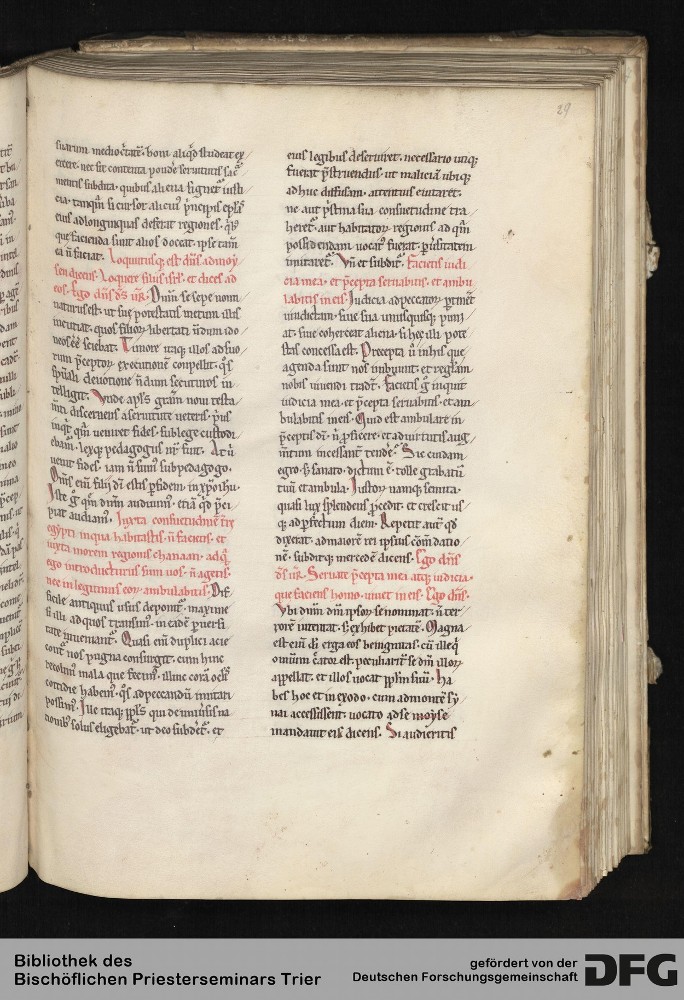 29
suarum mediocritate. boni aliqd studeat ex
ercere. nec sit contenta
mentis subdita. quibus aliena
cia. tanqm si cursor alicui pncipis eplas
eius ad longinquas deferat regiones. qbz
que facienda sunt alios doceat. ipse tam
ea n faciat. Loquutusq; est dns ad moy
sen dicens. Loquere filiis isrl. et dices ad
eos. Ego dns ds ur. Dnm se sepe nomi
naturus est. ut sue potestatis metum illis
incutiat. quos filiorz libertati ndum ido
neos ee sciebat. Timore itaq; illos ad suo
rum pceptorz executione compellit. qs
spuali devotione ndum secuturos in
telligit. Unde apls gram noui testa
mti discernens a seruitute ueteris. prius
inqt qm ueniret fides. sub lege custodi
ebam. lexq; pedagogus nr fuit. At u
uenit fides. iam n sum sub pedagogo.
Oms eni filii di estis p fidem in xpo ihu.
Iste g qm dnm audiuim. etia qd pci
piat audiam. Iuxta consuetudine tre
egypti in qua habitastis. n facietis. et
iuxta morem regionis chanaan. ad qm
ego introducturus sum uos. n agetis.
nec in legitimis eorz ambulabitis. Dif
ficile antiquus usus deponit. maxime
si illi ad quos transim. in eade puersi
tate inueniant. Quasi eni duplici acie
cont nos pugna consurgit. cum hinc
recolim mala que fecim. illinc cora oclis
cottidie habem. qs ad peccandu imitari
possim. Ille itaq; ppls qui de uniuersis na
tionib solus eligebat. ut deo subderet. et
eius legibus deseruiret. necessario utiq;
fuerat pstruendus. ut malicia ubiq;
adhuc diffusam. attentius euitaret.
ne aut pstina sua consuetudine tra
heret. aut habitatorz regionis ad qm
possidendam uocat fuerat. puersitatem
imitaret. Un et subdit. Facietis iudi
cia mea. et pcepta seruabitis. et ambu
labitis in eis. Iudicia ad peccatorz ptinet
uindictam. siue sua unusquisq; puni
at. siue coherceat aliena. si hec illi pote
stas concessa est. Precepta u in his que
agenda sunt nos imbuunt. et reglam
nobis uiuendi tradt. Facietis g inquit
iudicia mea. et pcepta seruabitis. et am
bulabitis in eis. Quid est ambulare in
pceptis di. n pficere. et ad uirtutis aug
mtum incessant tende. Sic cuidam
egro sanato dictum e. tolle grabatu
tuu et ambula. Iustorz namq; semita.
quasi lux splendens pcedit. et crescit us
q; ad pfectum diem. Repetit aut qd
dixerat. ad maiore rei ipsius comdatio
ne. subditq; mercede dicens. Ego dns
ds ur. Seruate pcepta mea atq; iudicia.
que faciens homo. uiuet in eis. Ego dns.
Ubi dnm dm ipsorz se nominat. n ter
rore intentat. s exhibet pietate. Magna
est eni di erga eos benignitas. cu ille q
omium cator est. peculiarit se dm illorz
appellat. et illos uocat pplm suu. Ha
bes hoc et in exodo. cum ad monte sy
nai accessissent. uocato ad se moyse
mandauit eis dicens. Si audieritis
Bibliothek des
Bischöflichen Priesterseminars Trier
gefördert von der
Deutschen Forschungsgemeinschaft
DFG